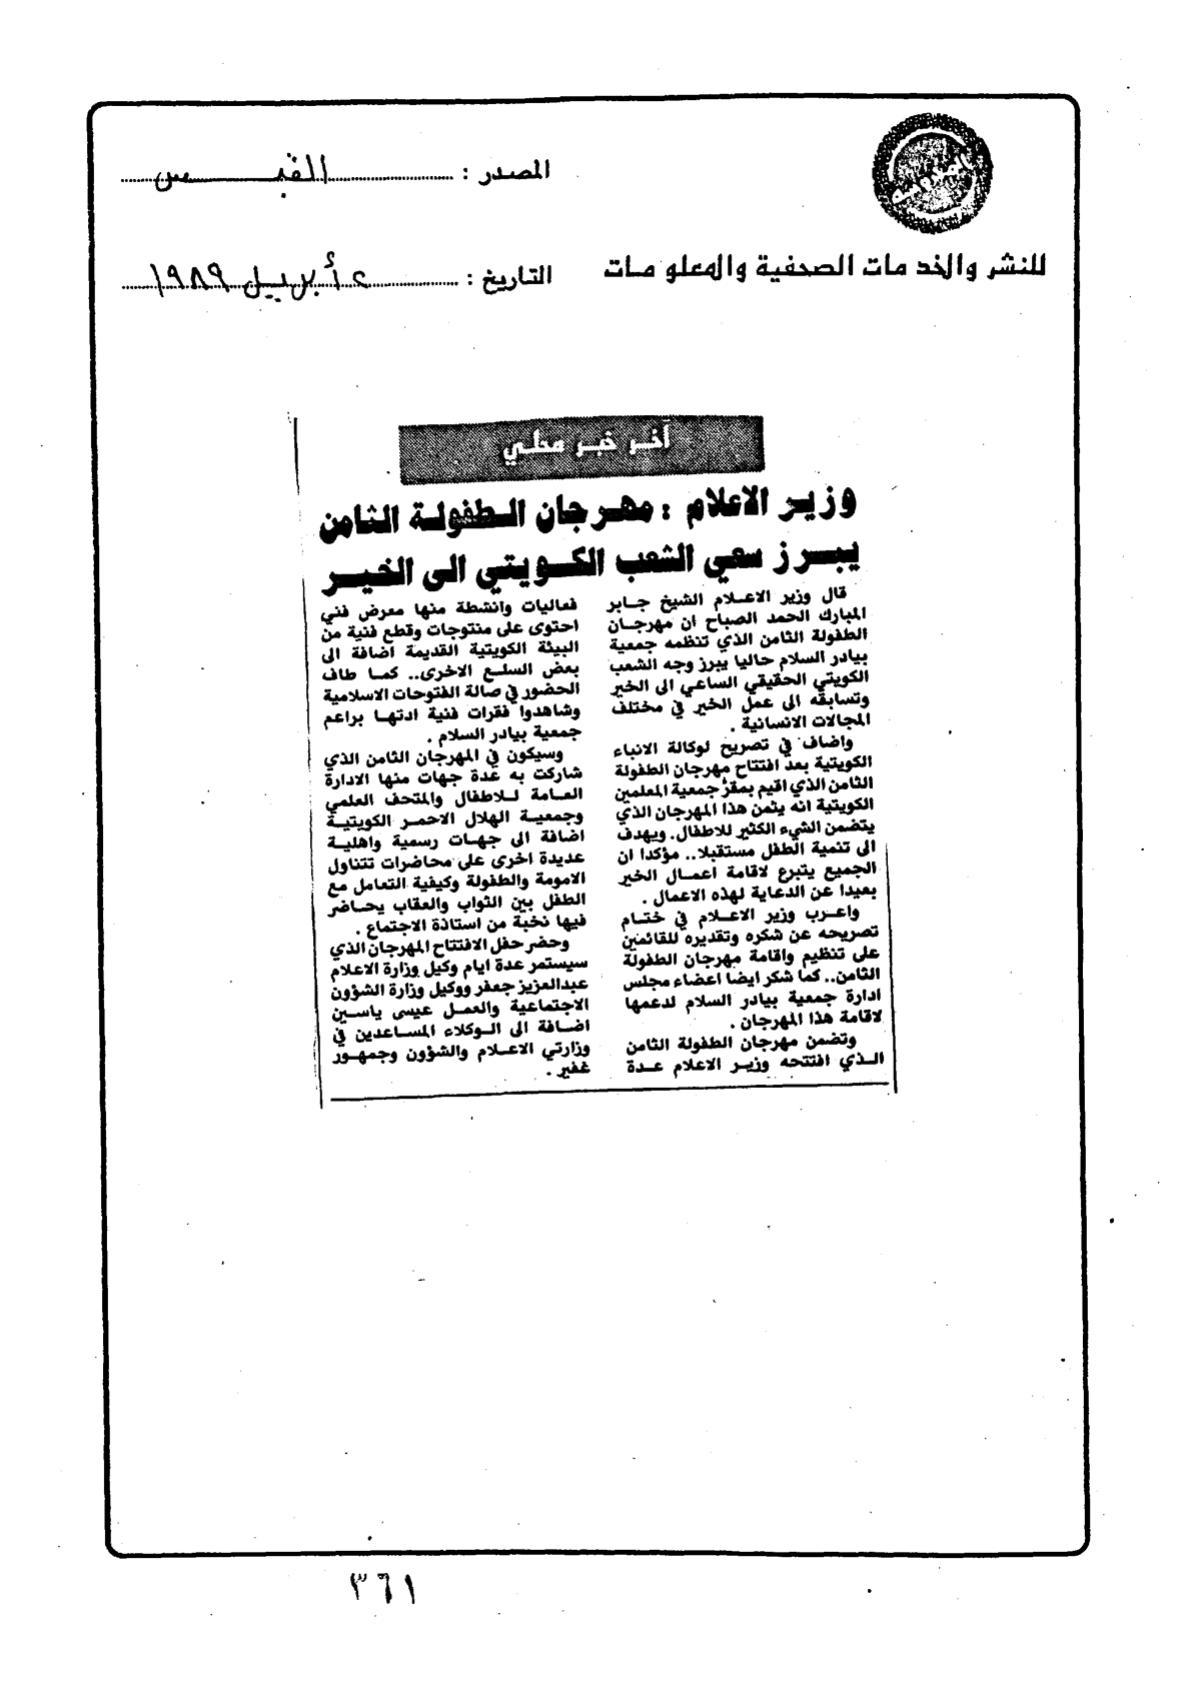 المصدر : القبس
للنشر والخدمات الصحفية والمعلومات
التاريخ : ٤ أبريل ١٩٨٩
آخر خبر محلي
وزير الاعلام : مهرجان الطفولة الثامن
يبرز سعي الشعب الكويتي الى الخير
قال وزير الاعلام الشيخ جابر
المبارك الحمد الصباح ان مهرجان
الطفولة الثامن الذي تنظمه جمعية
بيادر السلام حاليا يبرز وجه الشعب
الكويتي الحقيقي الساعي الى الخير
وتسابقه الى عمل الخير في مختلف
المجالات الانسانية .
واضاف في تصريح لوكالة الانباء
الكويتية بعد افتتاح مهرجان الطفولة
الثامن الذي اقيم بمقر جمعية المعلمين
الكويتية انه يثمن هذا المهرجان الذي
يتضمن الشيء الكثير للاطفال. ويهدف
الى تنمية الطفل مستقبلا.. مؤكدا ان
الجميع يتبرع لاقامة اعمال الخير
بعيدا عن الدعاية لهذه الاعمال .
واعرب وزير الاعلام في ختام
تصريحه عن شكره وتقديره للقائمين
على تنظيم واقامة مهرجان الطفولة
الثامن.. كما شكر ايضا اعضاء مجلس
ادارة جمعية بيادر السلام لدعمها
لاقامة هذا المهرجان .
وتضمن مهرجان الطفولة الثامن
الذي افتتحه وزير الاعلام عدة
فعاليات وانشطة منها معرض فني
احتوى على منتوجات وقطع فنية من
البيئة الكويتية القديمة اضافة الى
بعض السلع الاخرى.. كما طاف
الحضور في صالة الفتوحات الاسلامية
وشاهدوا فقرات فنية ادتها براعم
جمعية بيادر السلام .
وسيكون في المهرجان الثامن الذي
شاركت به عدة جهات منها الادارة
العامة للاطفال والمتحف العلمي
وجمعية الهلال الاحمر الكويتية
اضافة الى جهات رسمية واهلية
عديدة اخرى على محاضرات تتناول
الامومة والطفولة وكيفية التعامل مع
الطفل بين الثواب والعقاب يحاضر
فيها نخبة من استاذة الاجتماع .
وحضر حفل الافتتاح المهرجان الذي
سيستمر عدة ايام وكيل وزارة الاعلام
عبدالعزيز جعفر ووكيل وزارة الشؤون
الاجتماعية والعمل عيسى ياسين
اضافة الى الوكلاء المساعدين في
وزارتي الاعلام والشؤون وجمهور
غفير .
٣٦١